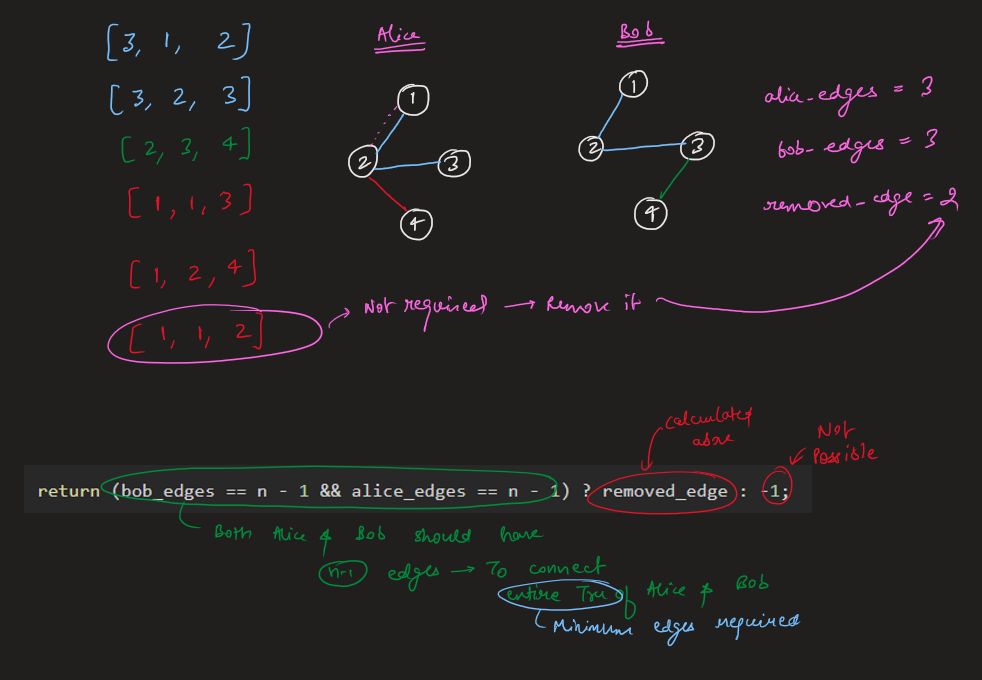 [3, 1, 2]
[3, 2, 3]
[2, 3, 4]
[1, 1, 3]
[1, 2, 4]
[1, 1, 2]
Alice
1
2
3
4
Bob
1
2
3
4
alice_edges = 3
bob_edges = 3
removed_edge = 2
Not required → Remove it
calculated
above
Not
Possible
return (bob_edges == n - 1 && alice_edges == n - 1) ? removed_edge : -1;
Both Alice & Bob should have
n-1 edges → To connect
entire Tree of Alice & Bob
Minimum edges required